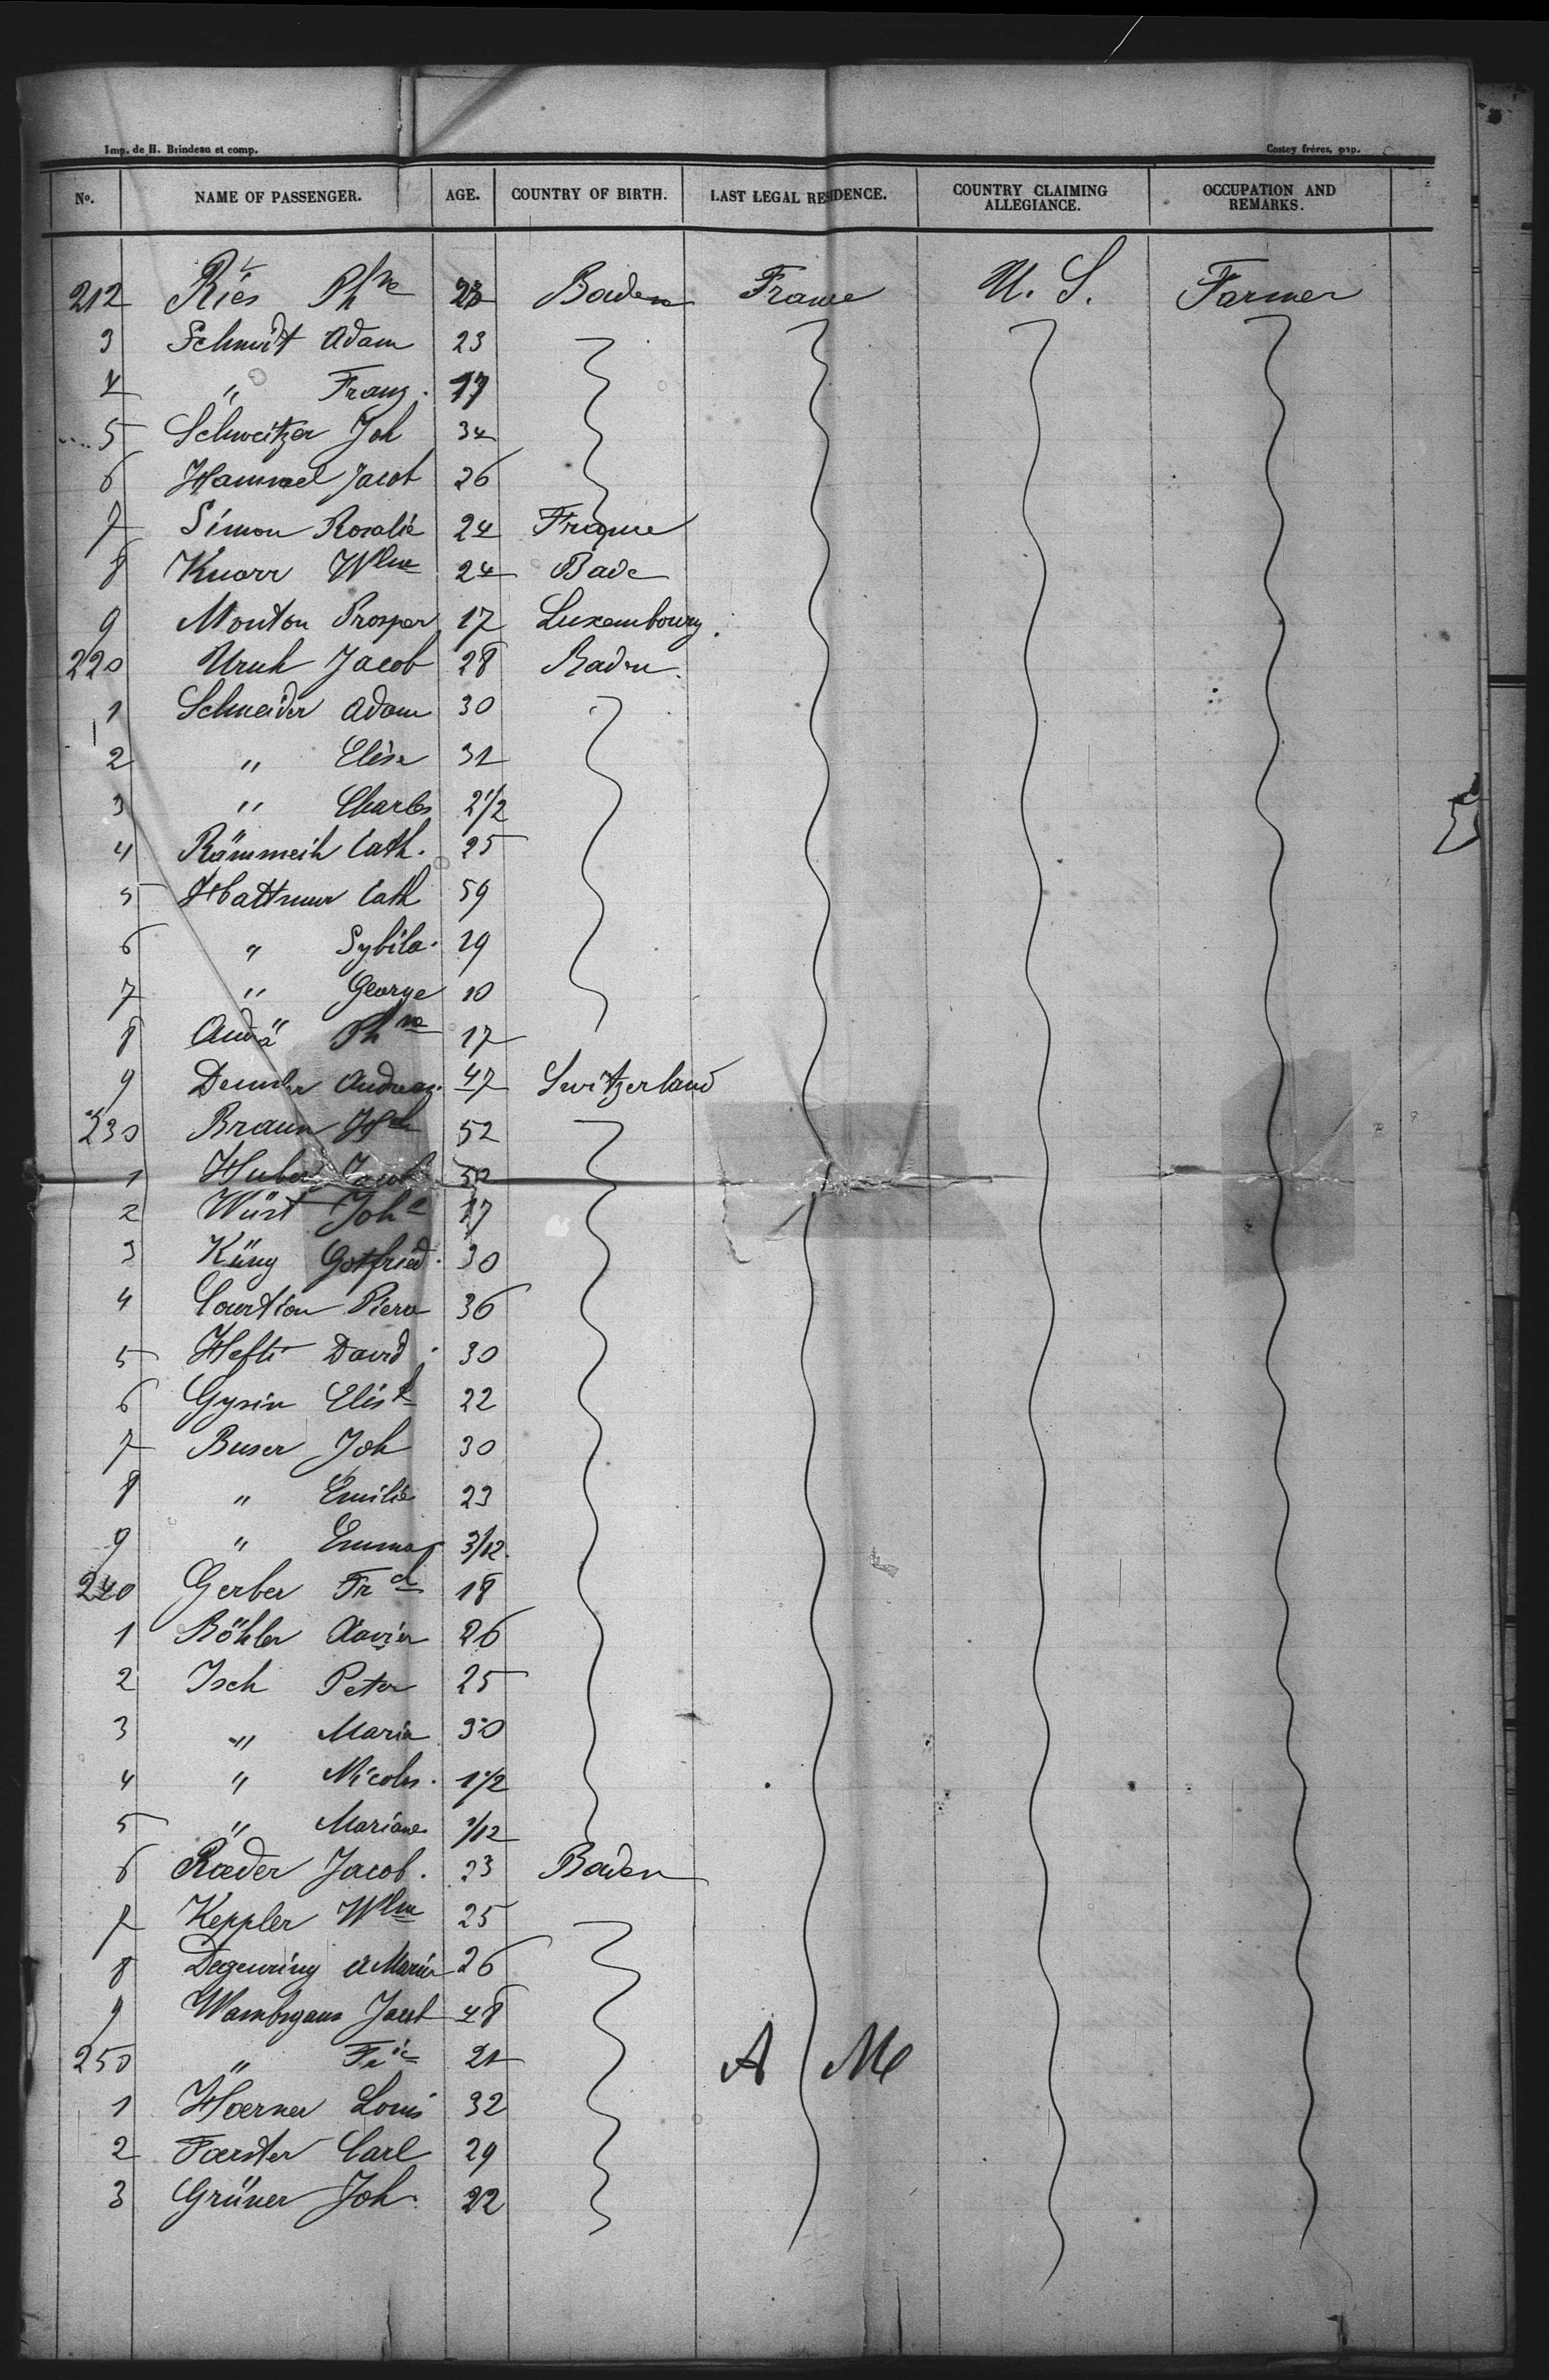 Imp. de H. Brindeau et comp. Costey frères, pap.
No. NAME OF PASSENGER. AGE. COUNTRY OF BIRTH. LAST LEGAL RESIDENCE. COUNTRY CLAIMING ALLEGIANCE. OCCUPATION AND REMARKS.
212 Ries Phne Baden France U. S. Farmer
3 Schmidt Adam 23
4 " Franz. 17
5 Schweitzer Joh 34
6 Hammel Jacob 26
7 Simon Rosalie 24 France
8 Knorr Wlm 24 Bade
9 Mouton Prosper 17 Luxembourg.
220 Unuh Jacob 28 Baden.
1 Schneider Adam 30
2 " Elise 31
3 " Charles 2 1/2
4 Cath. 25
5 Cath 59
6 " Sybila. 19
7 " George 10
8 17
9 Andreas. 47 Switzerland
230 Braun 52
1 Huber Jacob
2 Wüst Johe 17
3 Küng Gotfried. 30
4 Courtion Pierre 36
5 Hefti David. 30
6 Gysin Elish 22
7 Buser Joh 30
8 " Emilie 23
9 " Emma 3/12.
240 Gerber Frd 18
1 Böhler Xavier 26
2 Isch Peter 25
3 " Maria 30
4 " Nicolas. 1 1/2
5 " Mariane 1/12
6 Rœder Jacob. 23 Baden
7 Keppler Wlm 25
8 A Maria 26
9 Wambsgans Jacob 48
250 " 21 A M
1 Hœrner Louis 32
2 Fœrster Carl 29
3 Grüner Joh. 22